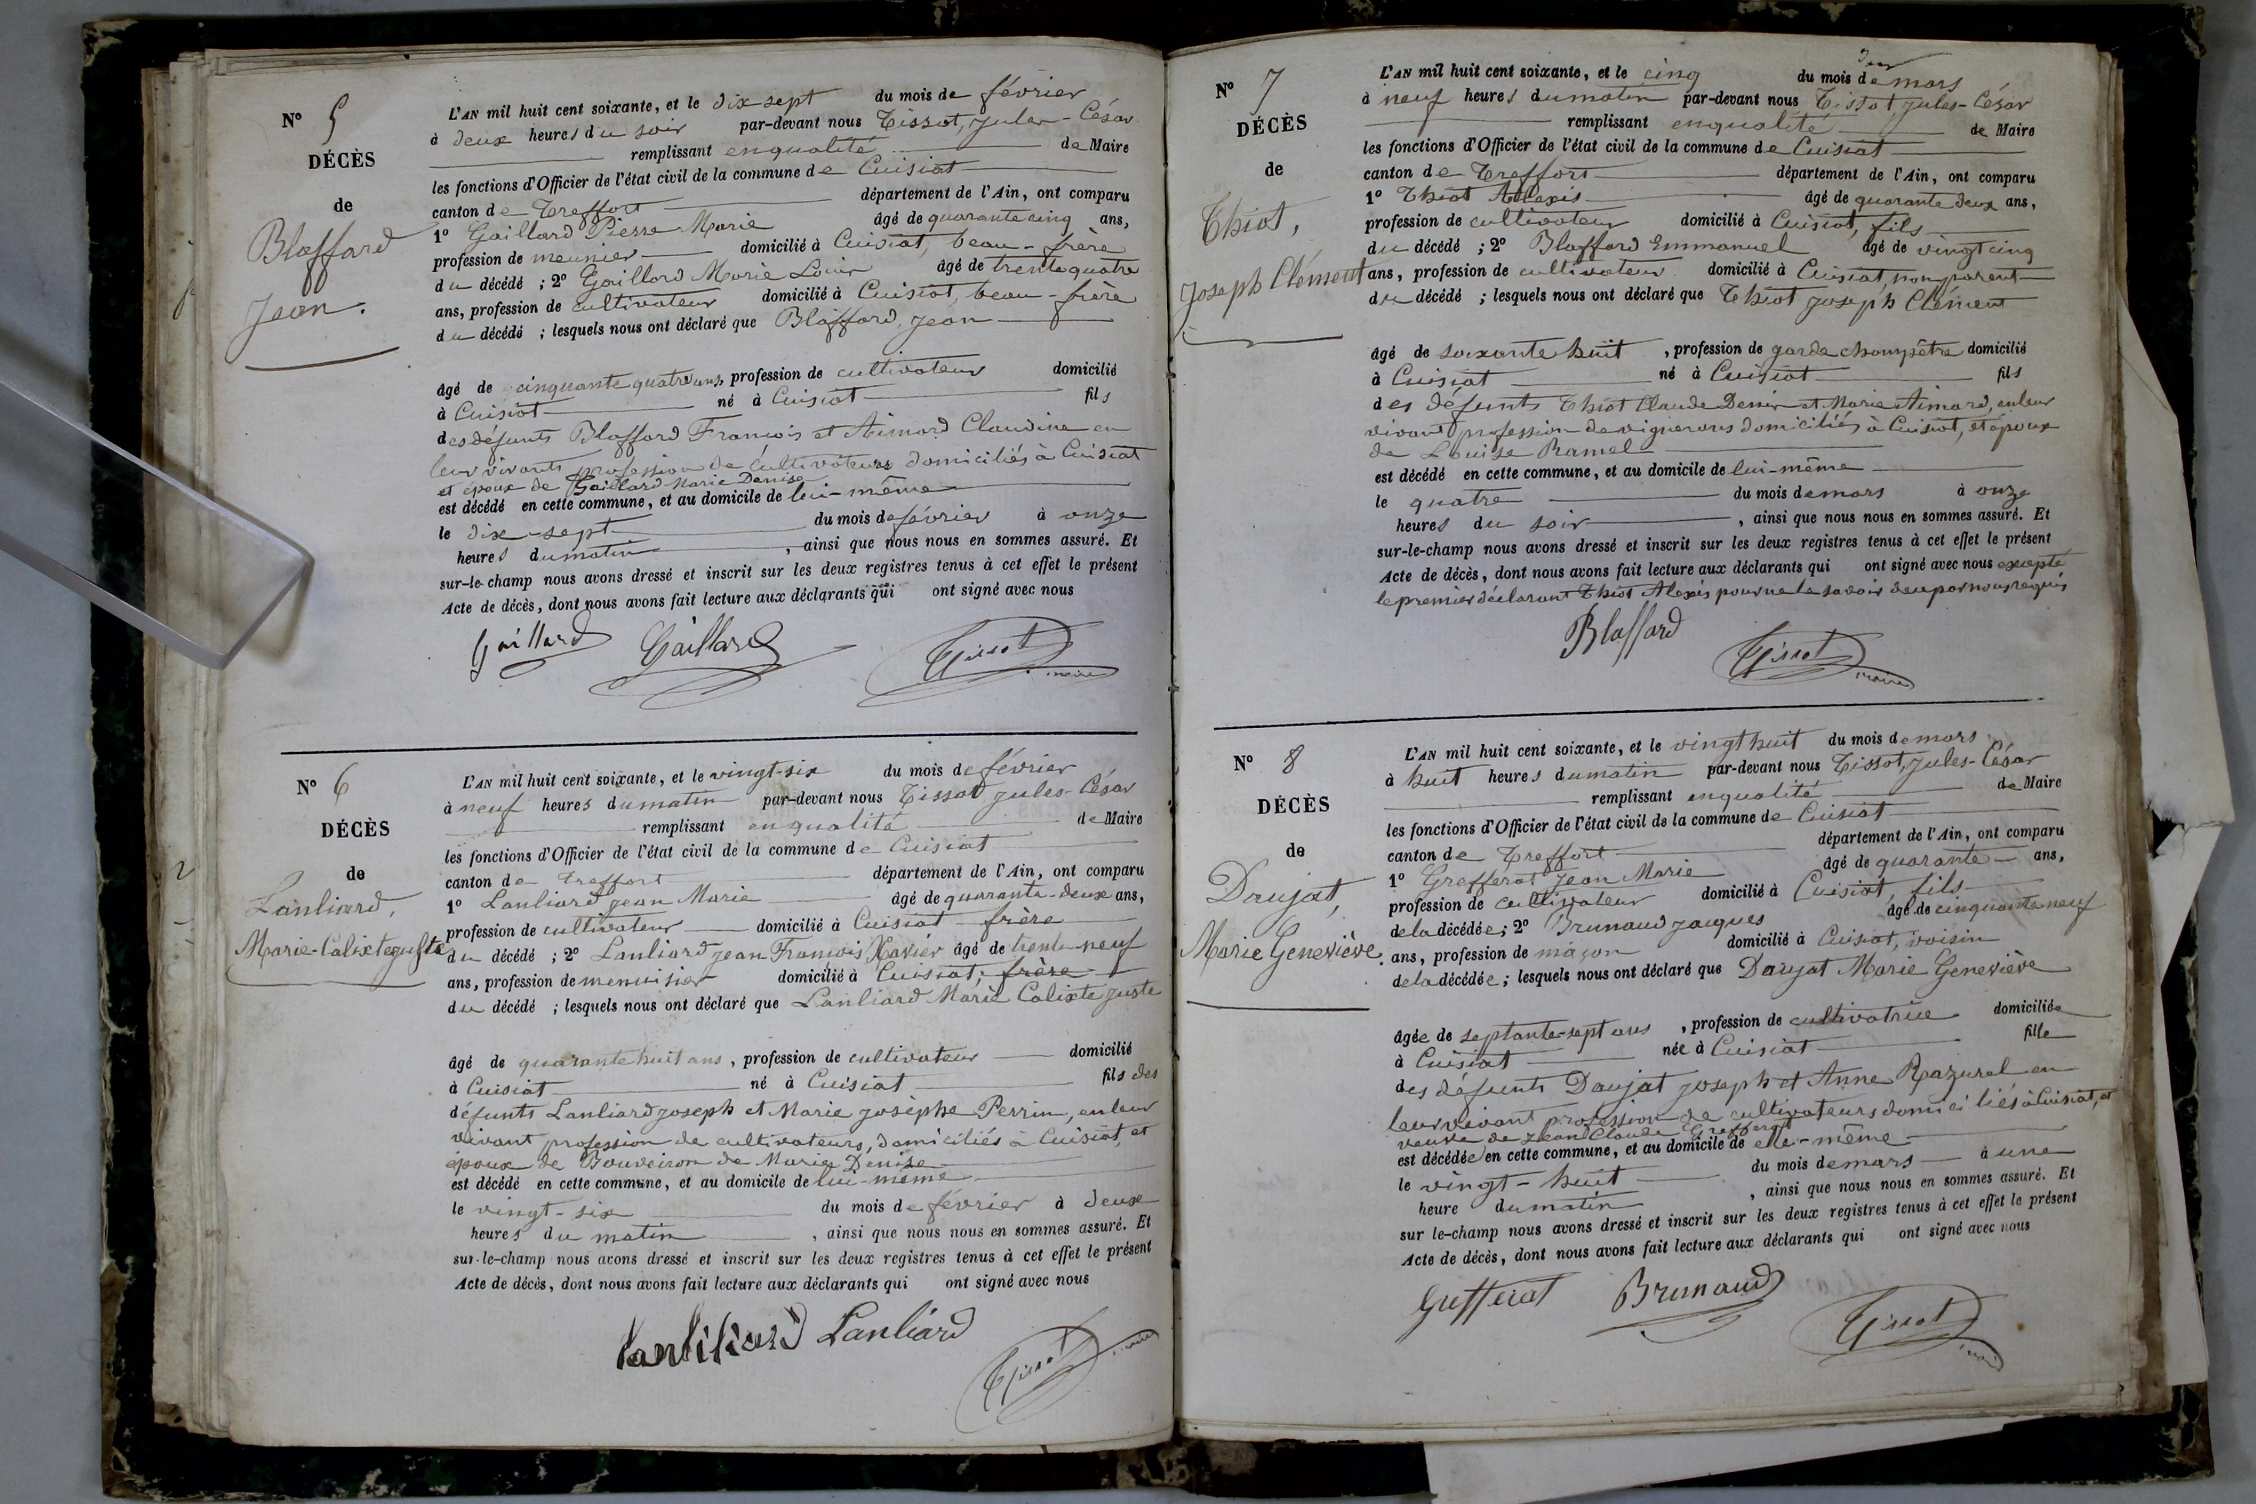 N° 5
DÉCÈS
de
Blaffard
Jean.
L'AN mil huit cent soixante, et le dix sept du mois de février
à deux heures du soir par-devant nous Tissot, Jules-César
remplissant en qualité de Maire
les fonctions d'Officier de l'état civil de la commune de Cuisiat
canton de Treffort département de l'Ain, ont comparu
1° Gaillard Pierre Marie âgé de quarante cinq ans,
profession de meunier domicilié à Cuisiat, beau-frère
du décédé ; 2° Gaillard Marie Louis âgé de trente quatre
ans, profession de cultivateur domicilié à Cuisiat, beau-frère
du décédé ; lesquels nous ont déclaré que Blaffard, Jean
âgé de cinquante quatre ans, profession de cultivateur domicilié
à Cuisiat né à Cuisiat fils
des défunts Blaffard François et Aimard Claudine en
leur vivants profession de cultivateurs domiciliés à Cuisiat
et époux de Gaillard Marie Denise
est décédé en cette commune, et au domicile de lui-même
le dix-sept du mois de février à onze
heures du matin , ainsi que nous nous en sommes assuré. Et
sur-le-champ nous avons dressé et inscrit sur les deux registres tenus à cet effet le présent
Acte de décès, dont nous avons fait lecture aux déclarants qui ont signé avec nous
Gaillard Gaillard Tissot
maire
N° 6
DÉCÈS
de
Lanliard,
Marie-Calixte Juste
L'AN mil huit cent soixante, et le vingt-six du mois de février
à neuf heures du matin par-devant nous Tissot Jules-César
remplissant en qualité de Maire
les fonctions d'Officier de l'état civil de la commune de Cuisiat
canton de Treffort département de l'Ain, ont comparu
1° Lanliard Jean Marie âgé de quarante-deux ans,
profession de cultivateur domicilié à Cuisiat frère
du décédé ; 2° Lanliard Jean François Xavier âgé de trente-neuf
ans, profession de menuisier domicilié à Cuisiat, frère
du décédé ; lesquels nous ont déclaré que Lanliard Marie Calixte Juste
âgé de quarante huit ans, profession de cultivateur domicilié
à Cuisiat né à Cuisiat fils des
défunts Lanliard Joseph et Marie Josèphe Perrin, en leur
vivant profession de cultivateurs, domiciliés à Cuisiat, et
époux de Bouveiron de Marie Denise
est décédé en cette commune, et au domicile de lui-même
le vingt-six du mois de février à deux
heures du matin , ainsi que nous nous en sommes assuré. Et
sur-le-champ nous avons dressé et inscrit sur les deux registres tenus à cet effet le présent
Acte de décès, dont nous avons fait lecture aux déclarants qui ont signé avec nous
Lanliard Tissot
N° 7
DÉCÈS
de
Thiot,
Joseph Clément
L'AN mil huit cent soixante, et le cinq du mois de mars
à neuf heures du matin par-devant nous Tissot, Jules-César
remplissant en qualité de Maire
les fonctions d'Officier de l'état civil de la commune de Cuisiat
canton de Treffort département de l'Ain, ont comparu
1° Thiot Alexis âgé de quarante deux ans,
profession de cultivateur domicilié à Cuisiat, fils
du décédé ; 2° Blaffard Emmanuel âgé de vingt cinq
ans, profession de cultivateur domicilié à Cuisiat, non parent
du décédé ; lesquels nous ont déclaré que Thiot Joseph Clément
âgé de soixante huit , profession de garde champêtre domicilié
à Cuisiat né à Cuisiat fils
des défunts Thiot Claude Denis et Marie Aimard, en leur
vivant profession de vignerons domiciliés à Cuisiat, et époux
de Louise Ramel
est décédé en cette commune, et au domicile de lui-même
le quatre du mois de mars à onze
heures du soir , ainsi que nous nous en sommes assuré. Et
sur-le-champ nous avons dressé et inscrit sur les deux registres tenus à cet effet le présent
Acte de décès, dont nous avons fait lecture aux déclarants qui ont signé avec nous excepté
le premier déclarant Thiot Alexis pour ne le savoir de ce par nous requis
Blaffard Tissot
maire
N° 8
DÉCÈS
de
Daujat,
Marie Geneviève.
L'AN mil huit cent soixante, et le vingt huit du mois de mars
à huit heures du matin par-devant nous Tissot, Jules-César
remplissant en qualité de Maire
les fonctions d'Officier de l'état civil de la commune de Cuisiat
canton de Treffort département de l'Ain, ont comparu
1° Grefferat Jean Marie âgé de quarante ans,
profession de cultivateur domicilié à Cuisiat, fils
de la décédée ; 2° Brunaud Jacques âgé de cinquante neuf
ans, profession de maçon domicilié à Cuisiat, voisin
de la décédée ; lesquels nous ont déclaré que Daujat Marie Geneviève
âgée de septante-sept ans , profession de cultivatrice domiciliée
à Cuisiat née à Cuisiat fille
des défunts Daujat Joseph et Anne Razurel en
leur vivant profession de cultivateurs domiciliés à Cuisiat, et
veuve de Jean Claude Grefferat
est décédée en cette commune, et au domicile de elle-même
le vingt-huit du mois de mars à une
heure du matin , ainsi que nous nous en sommes assuré. Et
sur le-champ nous avons dressé et inscrit sur les deux registres tenus à cet effet le présent
Acte de décès, dont nous avons fait lecture aux déclarants qui ont signé avec nous
Grefferat Brunaud Tissot